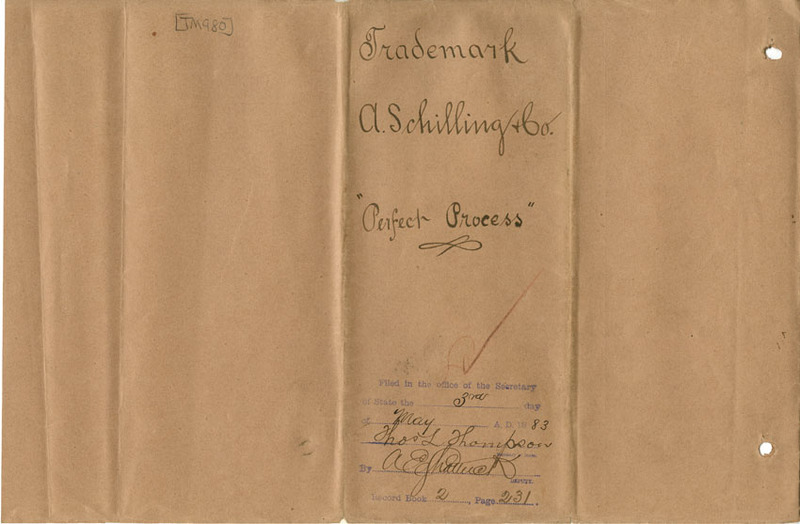 [TM980]
Trademark
A. Schilling & Co.
"Perfect Process"
Filed in the office of the Secretary
of State the 3rd day
of May A. D. 1883
Thos L. Thompson
By
DEPUTY.
Record Book 2, Page 231.